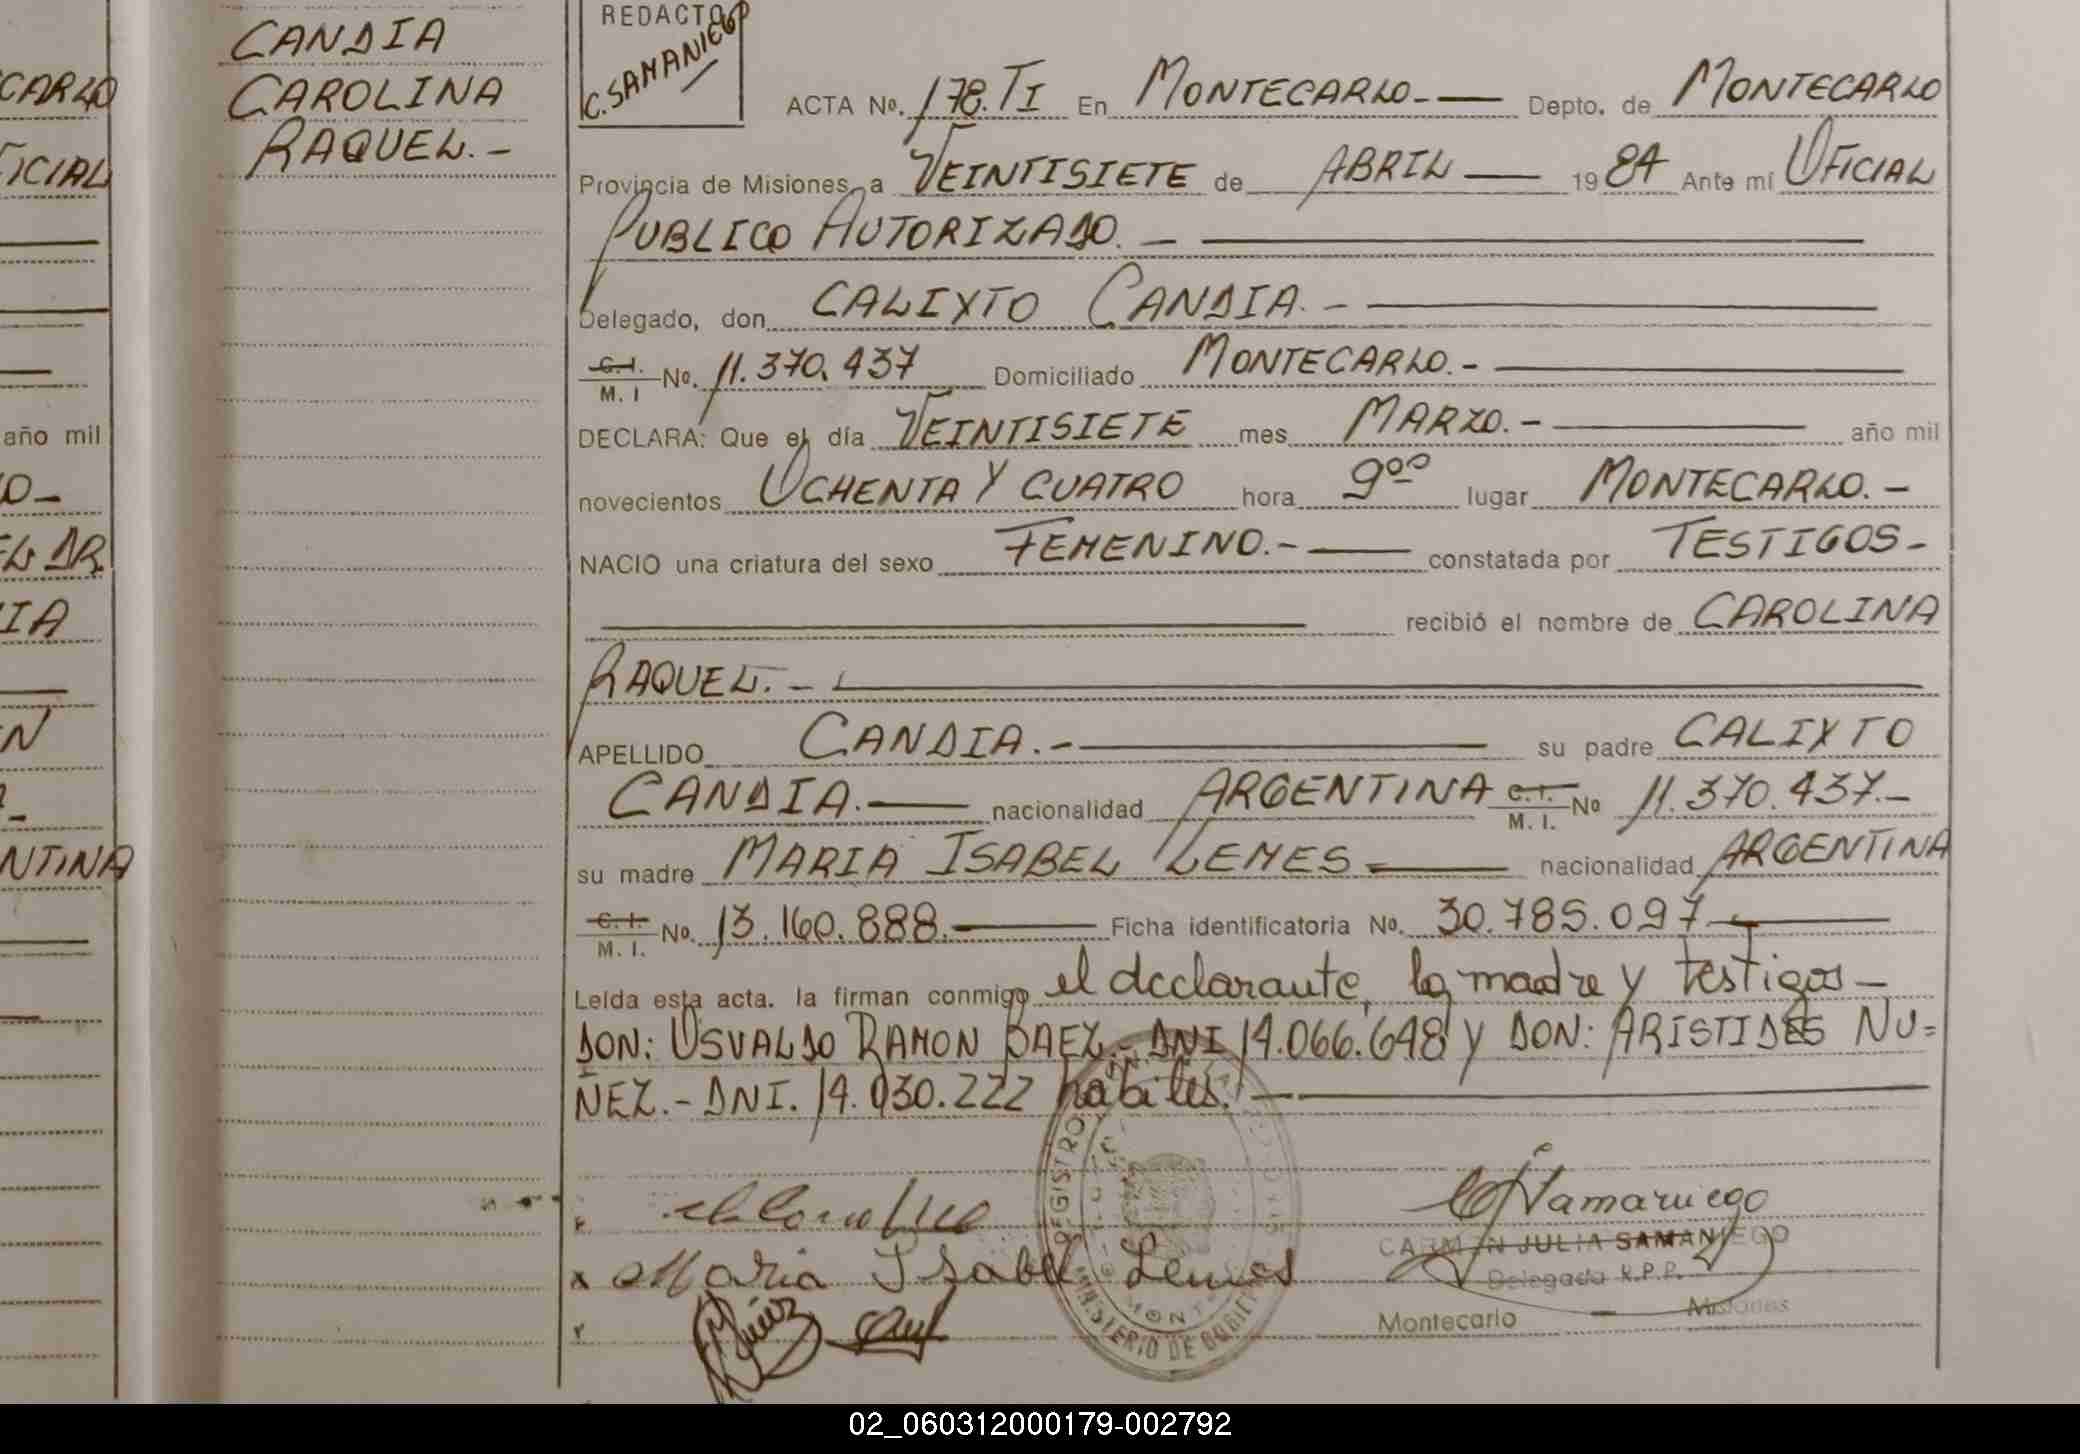 CANDIA
CAROLINA
RAQUEL.-
CARLO
FICIAL
año mil
O-
EL DR
IA
EN
NTINA
REDACTO
C. SAMANIEGO
ACTA No. 178. TI En MONTECARLO.- Depto. de MONTECARLO
Provincia de Misiones, a VEINTISIETE de ABRIL 19 84 Ante mí OFICIAL
PUBLICO AUTORIZADO. -
Delegado, don CALIXTO CANDIA. -
C. I. M. I No. 11.370.437 Domiciliado MONTECARLO.-
DECLARA: Que el día VEINTISIETE mes MARZO.- año mil
novecientos OCHENTA Y CUATRO hora 9ºº lugar MONTECARLO.-
NACIO una criatura del sexo FEMENINO.- constatada por TESTIGOS-
recibió el nombre de CAROLINA
RAQUEL. -
APELLIDO CANDIA.- su padre CALIXTO
CANDIA. nacionalidad ARGENTINA C. I. M. I. Nº 11.370.437.-
su madre MARIA ISABEL LEMES nacionalidad ARGENTINA
C. I. M. I. No. 13.160.888. Ficha identificatoria No. 30.785.097
Leída esta acta. la firman conmigo el declarante, la madre y testigos-
DON: OSVALDO RAMON BAEZ.- DNI 14.066.648 y DON: ARISTIDES NU=
ÑEZ.- DNI. 14.030.222 habiles.
Maria Isabel Lemes
Báez
REGISTRO
MINISTERIO DE GOBIERNO
CSamaniego
CARMEN JULIA SAMANIEGO
Delegada R.P.P.
Montecarlo - Misiones
02_060312000179-002792